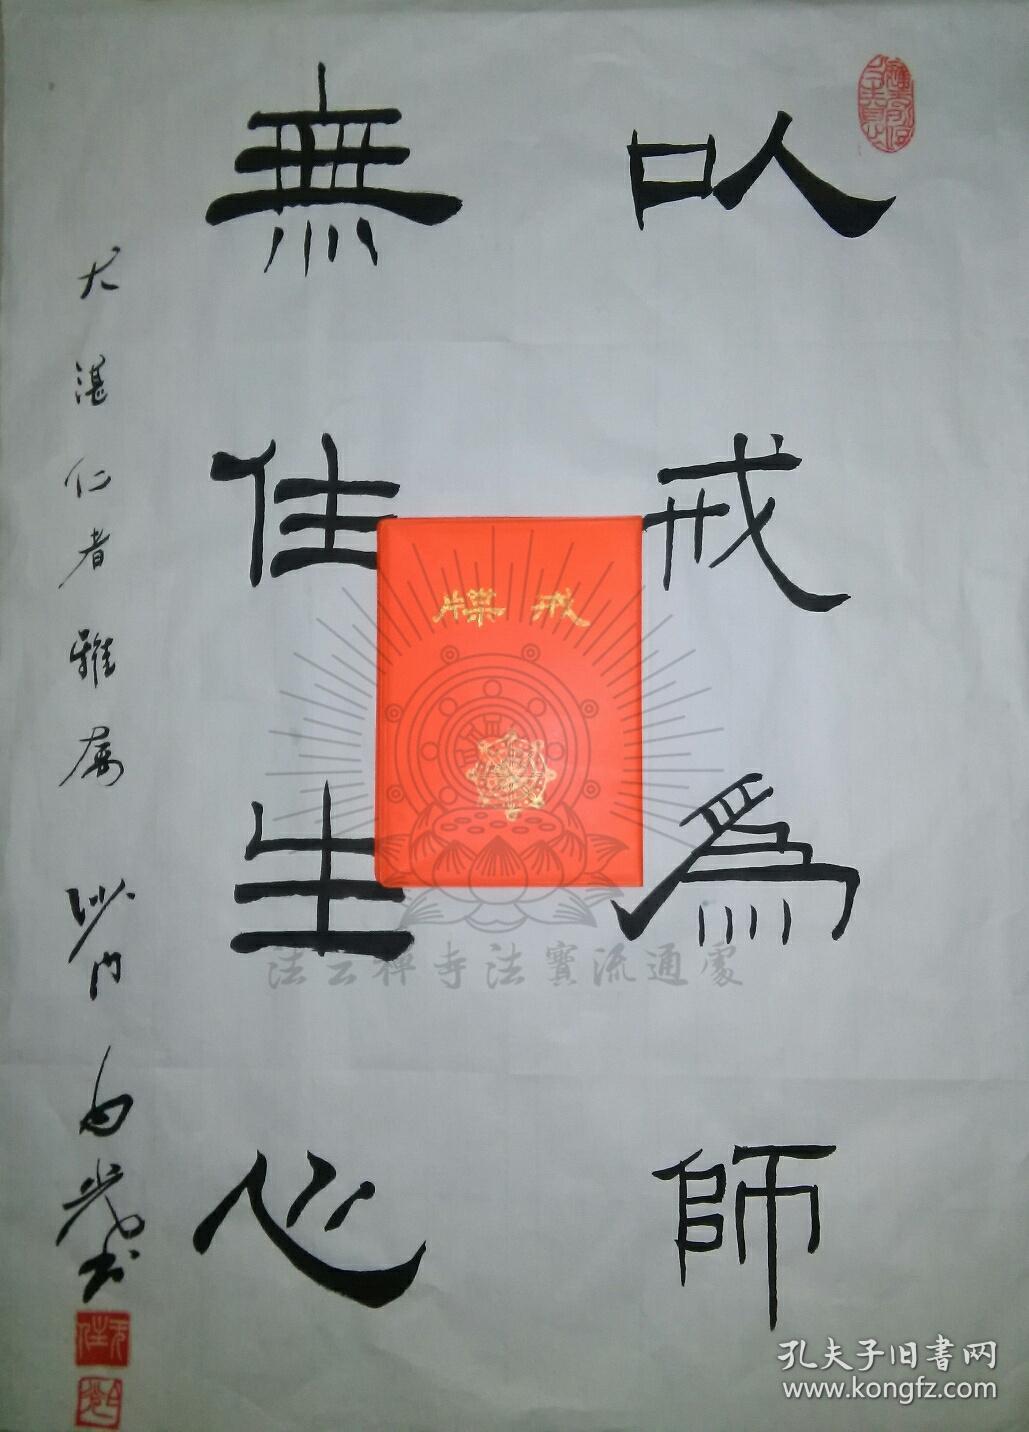 以戒為師
無住生心
大湛仁者雅属
沙門
戒牒
法云禅寺法寶流通處
孔夫子旧書网
www.kongfz.com